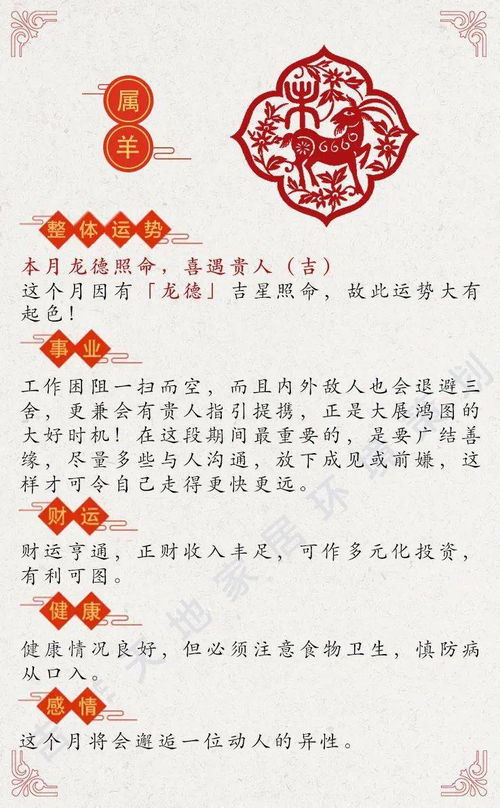 属
羊
整体运势
本月龙德照命，喜遇贵人（吉）
这个月因有「龙德」吉星照命，故此运势大有
起色！
事业
工作困阻一扫而空，而且内外敌人也会退避三
舍，更兼会有贵人指引提携，正是大展鸿图的
大好时机！在这段期间最重要的，是要广结善
缘，尽量多些与人沟通，放下成见或前嫌，这
样才可令自己走得更快更远。
财运
财运亨通，正财收入丰足，可作多元化投资，
有利可图。
健康
健康情况良好，但必须注意食物卫生，慎防病
从口入。
感情
这个月将会邂逅一位动人的异性。
天地家居环境策划